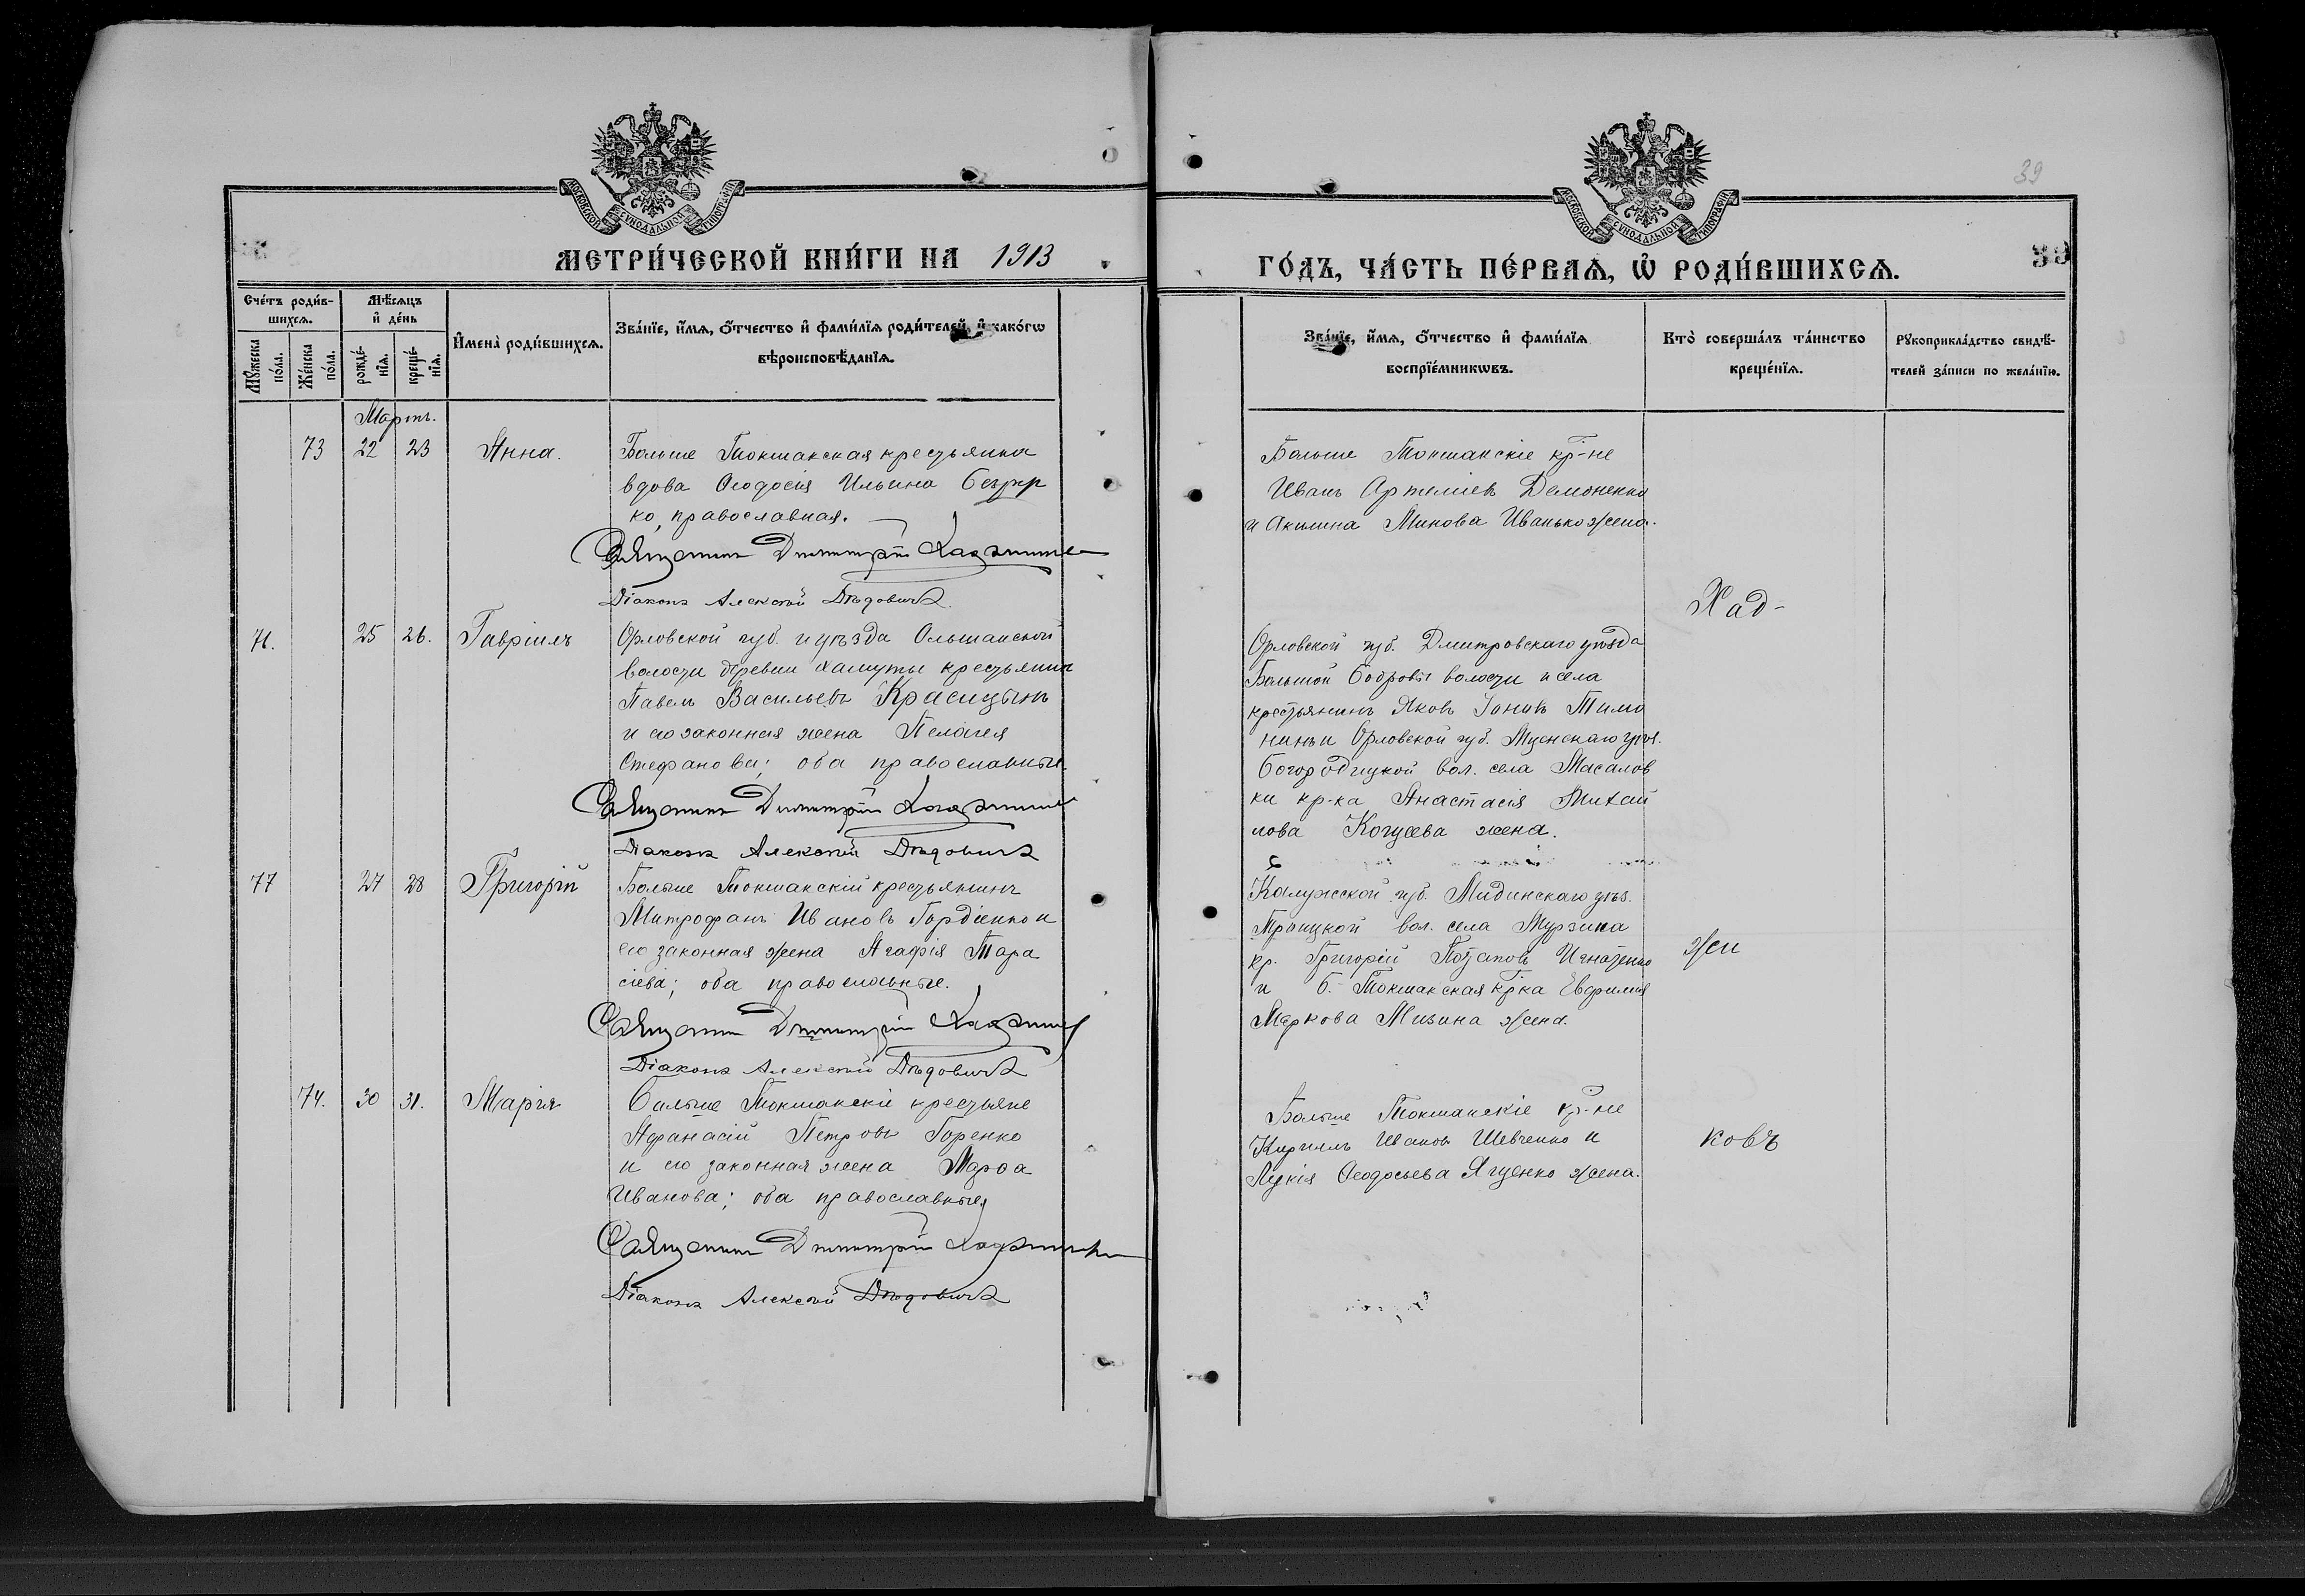 39
МОСКОВСКОЙ СѴНОДАЛЬНОЙ ТИПОГРАФІИ
МОСКОВСКОЙ СѴНОДАЛЬНОЙ ТИПОГРАФІИ
МЕТРИ́ЧЕСКОЙ КНИ́ГИ НА 1913
ГО́ДЪ, ЧА́СТЬ ПЕ́РВАЯ, Ѡ҆ РОДИ́ВШИХСЯ.
39
Счетъ родив-
шихся.
Мѣсяцъ
и день
Мужеска пола.
Женска пола.
рожде-
нія.
креще-
нія.
Имена родившихся.
Званіе, имя, отчество и фамилія родителей, и какогѡ
вѣроисповѣданія.
Званіе, имя, отчество и фамилія
воспріемникѡвъ.
Кто совершалъ таинство
крещенія.
Рукоприкладство свидѣ-
телей записи по желанію.
Мартъ.
73 22 23 Анна.
Больше Токмакская крестьянка
вдова Ѳеодосія Ильина
ко, православная.
Священникъ Димитрій
Діаконъ Алексѣй Дѣдовичъ
Больше Токмакскіе кр-не
Иванъ Артеміевъ Демоненко
и Акилина Минова Иванько жена.
Хад-
25 26. Гавріилъ
Орловской губ. и уѣзда Ольшанской
волости деревни Хамуты крестьянинъ
Павелъ Васильевъ Красицынъ
и его законная жена Пелагея
Стефанова; оба православные.
Священникъ Димитрій
Діаконъ Алексѣй Дѣдовичъ
Орловской губ. Дмитровскаго уѣзда
Большой Бобровы волости и села
крестьянинъ Яковъ Тимо
нинъ и Орловской губ. Мценскаго уѣз.
Богородицкой вол. села Масалов
ки кр-ка Анастасія Михай
лова жена.
77 27 28 Григорій
Больше Токмакскій крестьянинъ
Митрофанъ Ивановъ Гордіенко и
его законная жена Агафія Тара
сіева; оба православные.
Священникъ Димитрій
Діаконъ Алексѣй Дѣдовичъ
Калужской губ. Мидинскаго уѣз.
Троицкой вол. села Мурзина
кр. Григорій Потаповъ Игнатенко
и Б. Токмакская кр-ка Евфимія
Маркова Мизина жена.
жи
74. 30 31. Марія
Больше Токмакскіе крестьяне
Афанасій Петровъ Горенко
и его законная жена Марѳа
Иванова; оба православные
Священникъ Димитрій
Діаконъ Алексѣй Дѣдовичъ
Больше Токмакскіе кр-не
Кириллъ Ивановъ Шевченко и
Лукія Ѳеодосьева Яценко жена.
ковъ